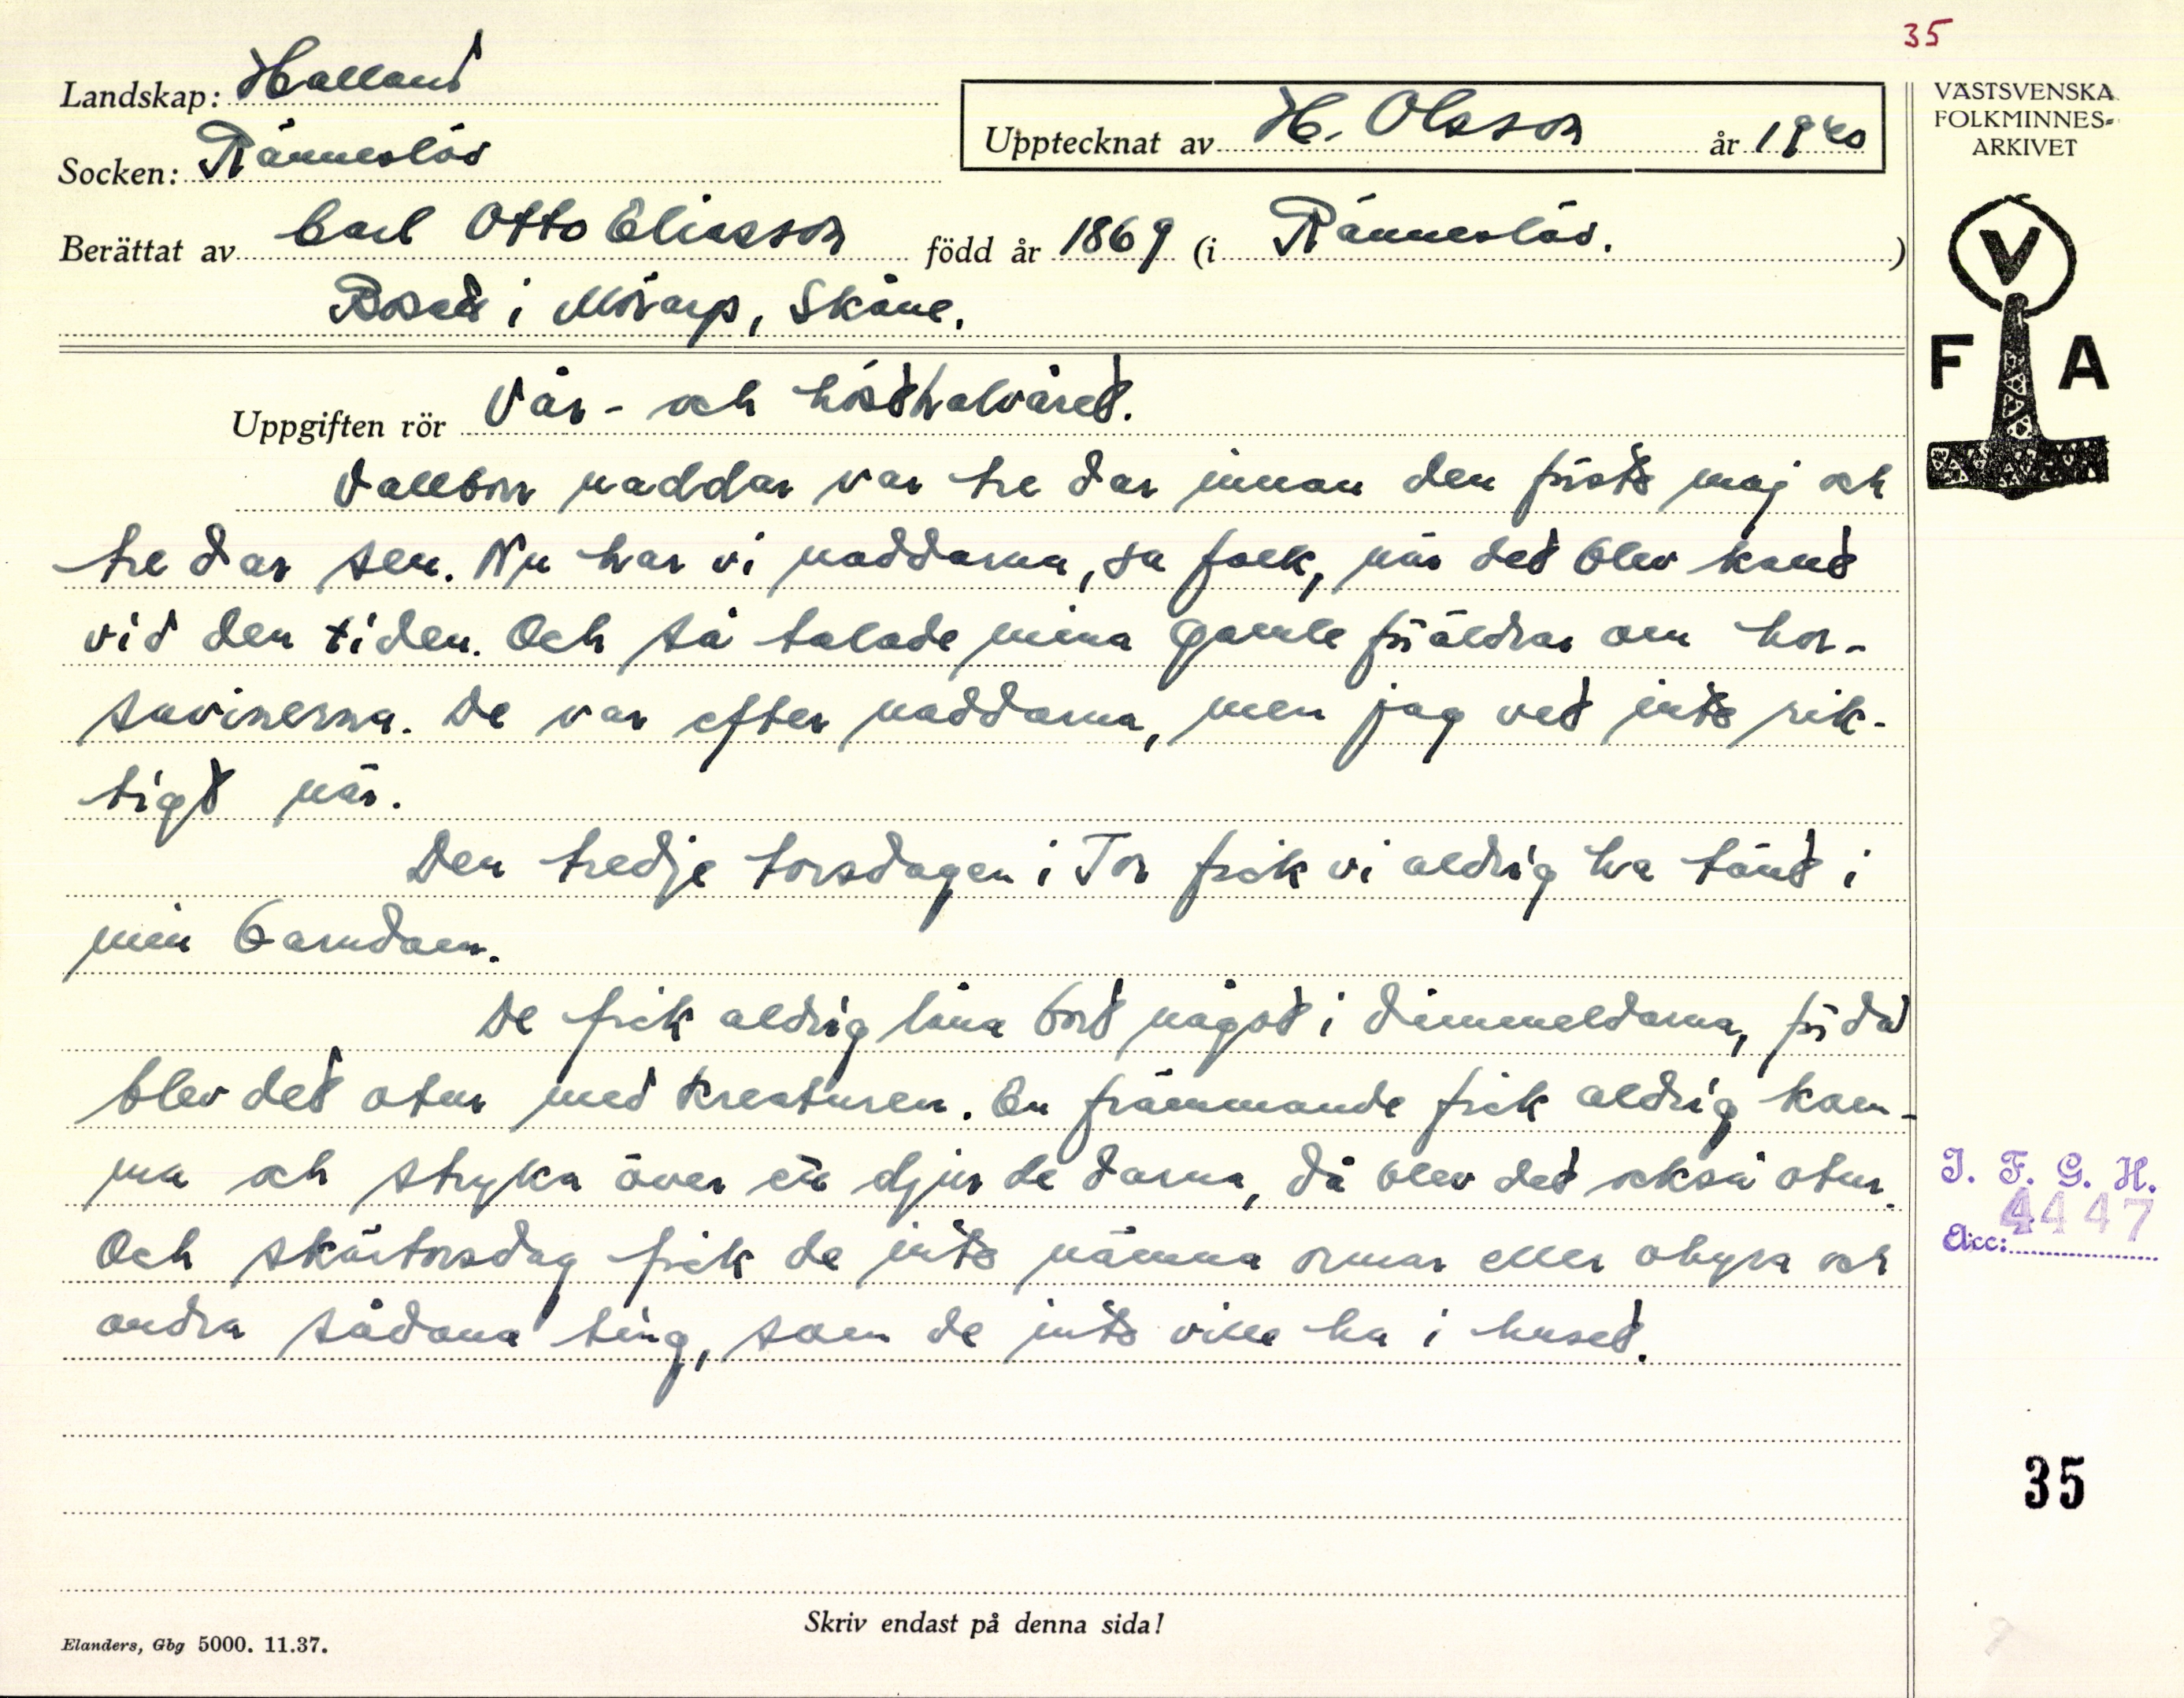 35
Landskap: Halland
Socken: Ränneslöv
Upptecknat av H. Olsson år 1940
VÄSTSVENSKA
FOLKMINNES-
ARKIVET
V
F A
Berättat av Carl Otto Eliasson född år 1869 (i Ränneslöv. )
Bosatt i Mörarp, Skåne.
Uppgiften rör Vår- och hösthalvåret.
Vallborr naddar var tre dar innan den första maj och
tre dar sen. Nu har vi naddarna, sa folk, när det blev kallt
vid den tiden. Och så talade mina gamle föräldrar om hor-
savinerna. De var efter naddarna, men jag vet inte rik-
tigt när.
Den tredje torsdagen i Tor fick vi aldrig ha tänt i
min barndom.
De fick aldrig låna bort något i dimmeldarna, för då
blev det otur med kreaturen. En främmande fick aldrig kom-
ma och stryka över ett djur de darna, då blev det också otur.
Och skärtorsdag fick de inte nämna ormar eller ohyra och
andra sådana ting, som de inte ville ha i huset.
I. F. G. H.
Acc: 4447
35
Skriv endast på denna sida!
Elanders, Gbg 5000. 11.37.